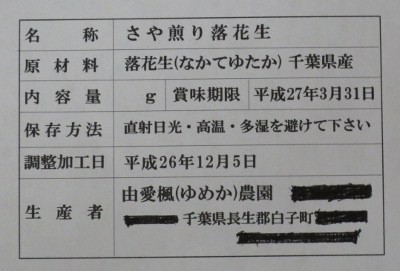 名称 さや煎り落花生
原材料 落花生(なかてゆたか) 千葉県産
内容量 g 賞味期限 平成27年3月31日
保存方法 直射日光・高温・多湿を避けて下さい
調整加工日 平成26年12月5日
生産者 由愛楓(ゆめか)農園
千葉県長生郡白子町